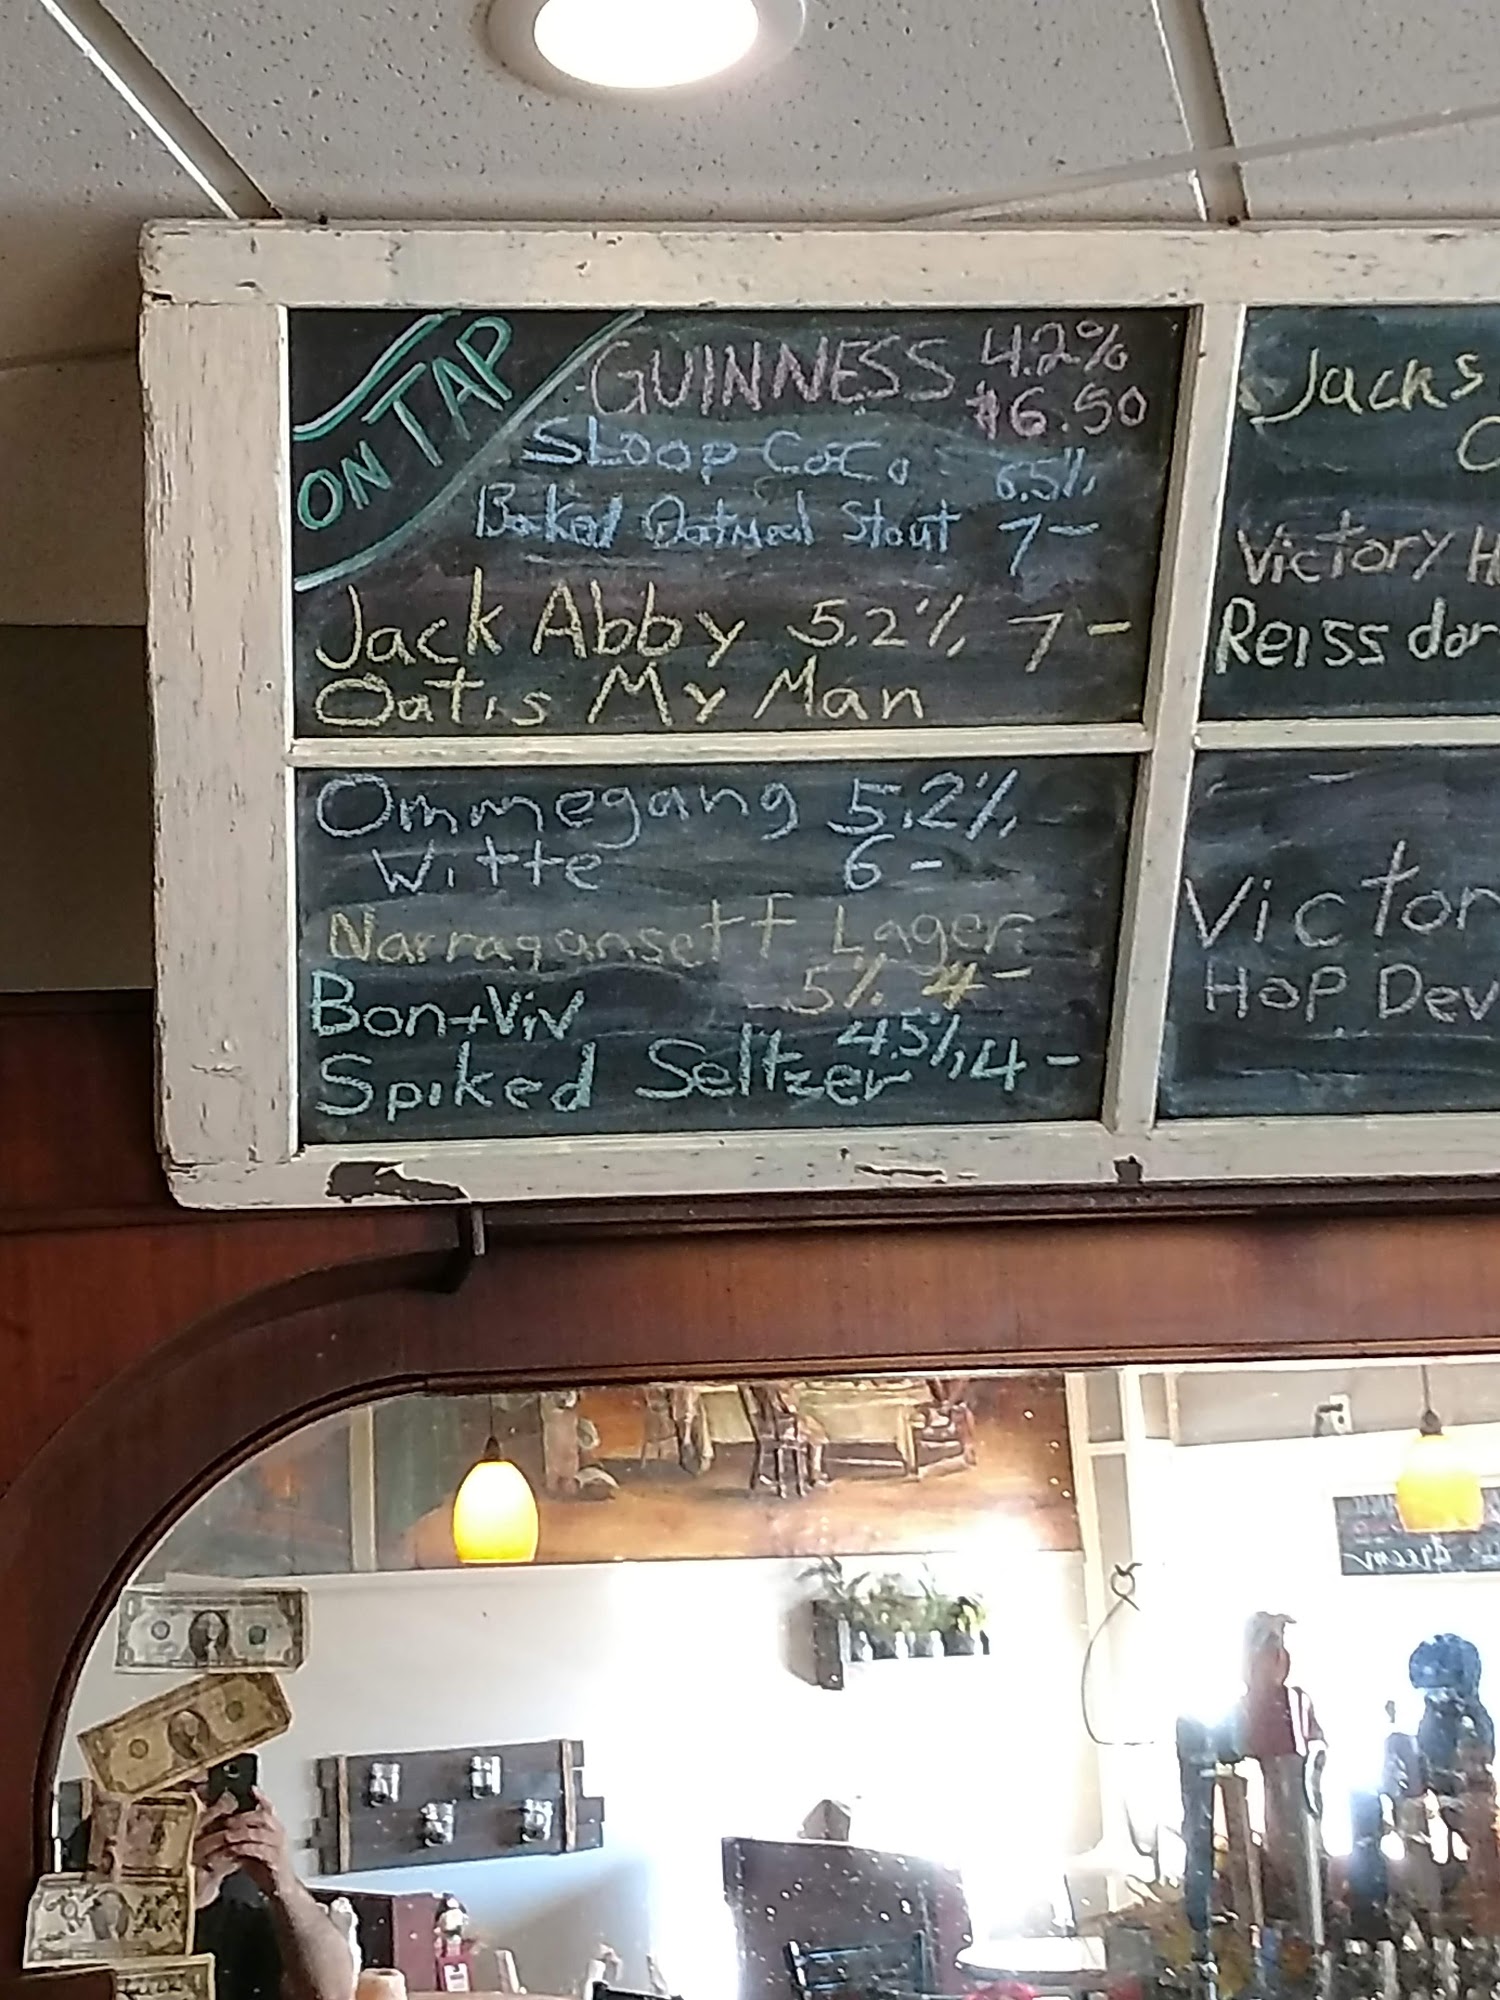 ON TAP
GUINNESS 4.2%
$6.50
SLOOP CoCo 6.5%
Baked Oatmeal Stout 7-
Jack Abby 5.2% 7-
Oatis My Man
Ommegang 5.2%
Witte 6-
Narragansett Lager
5% 4-
Bon+Viv
Spiked Seltzer 4.5% 4-
Jacks
Victory H
Reissdor
Victor
HOP Dev